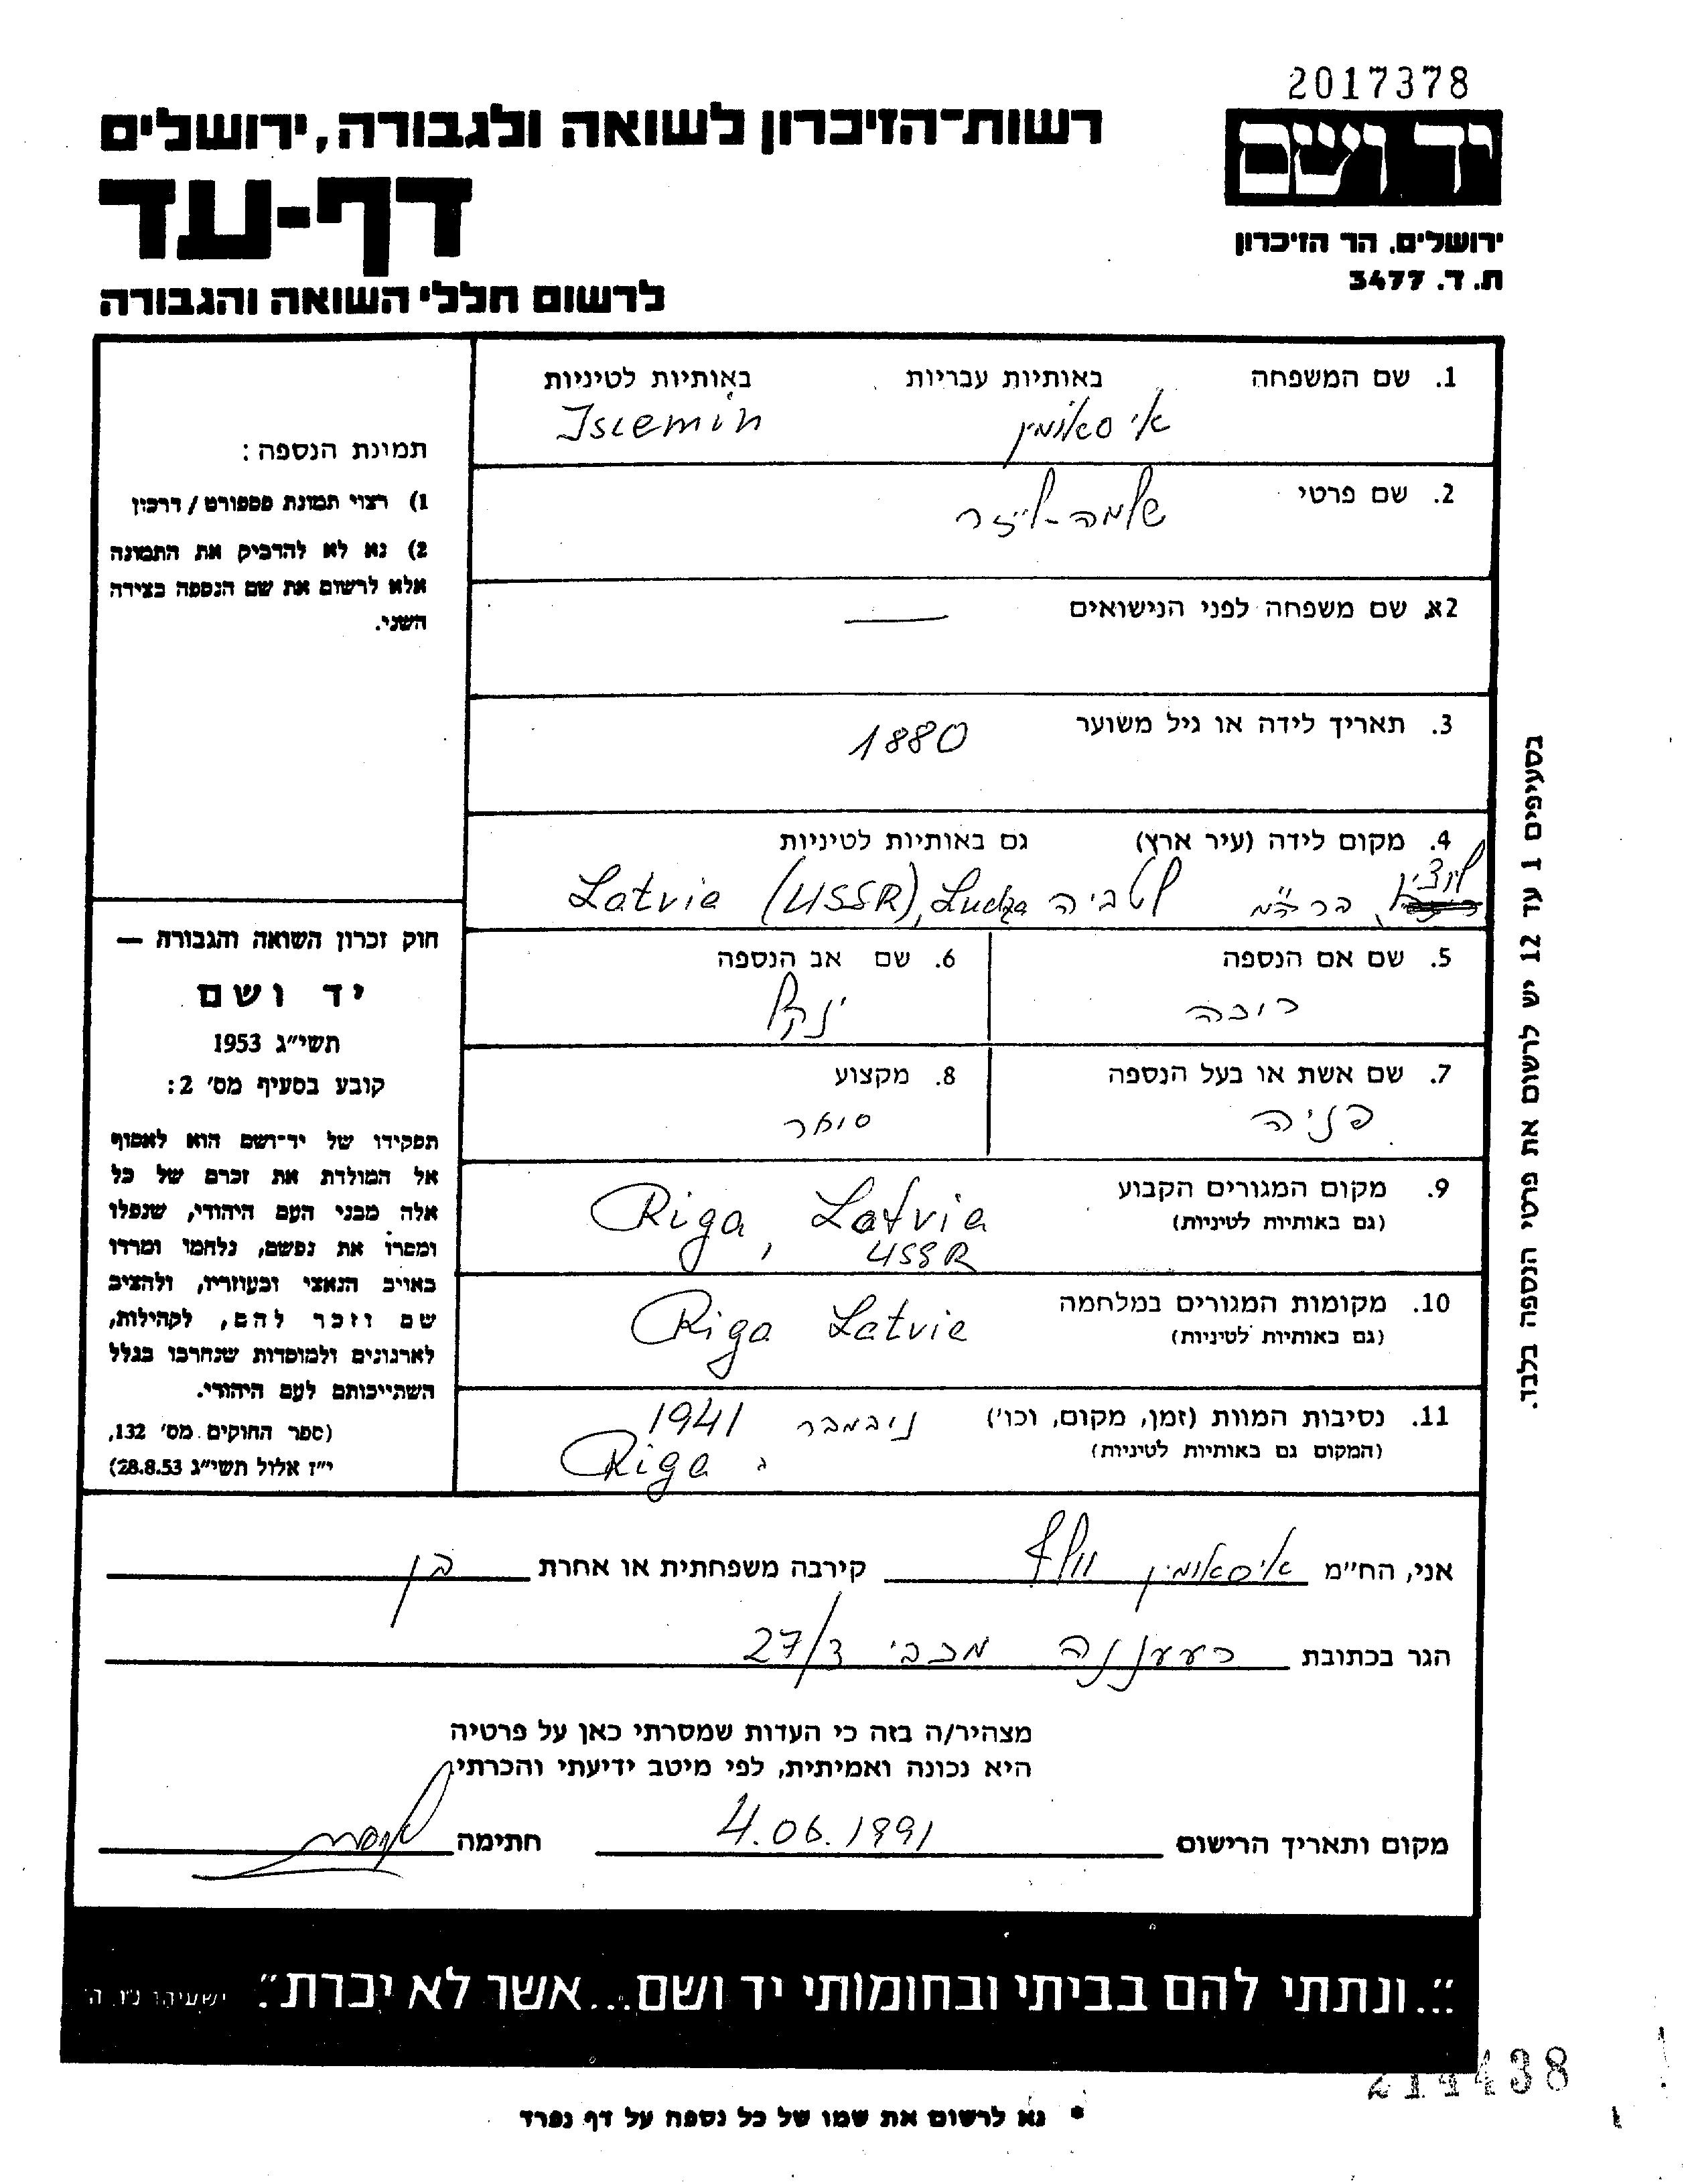 2017378
רשות־הזיכרון לשואה ולגבורה, ירושלים
יד ושם
דף-עד
ירושלים. הר הזיכרון
ת. ד. 3477
לרשום חללי השואה והגבורה
1. שם המשפחה באותיות עבריות באותיות לטיניות
איסאומין Isiemin
2. שם פרטי
שלמה-ליזר
2א. שם משפחה לפני הנישואים —
3. תאריך לידה או גיל משוער
1880
4. מקום לידה (עיר ארץ) גם באותיות לטיניות
לוצין
בריה"מ לטביה Latvia (USSR), Ludza
5. שם אם הנספה 6. שם אב הנספה
רובה ינקל
7. שם אשת או בעל הנספה 8. מקצוע
פניה סוחר
9. מקום המגורים הקבוע
(גם באותיות לטיניות)
Riga, Latvia
USSR
10. מקומות המגורים במלחמה
(גם באותיות לטיניות)
Riga Latvia
11. נסיבות המוות (זמן, מקום, וכו') נובמבר 1941
(המקום גם באותיות לטיניות)
Riga
תמונת הנספה:
1) רצוי תמונת פספורט / דרכון
2) נא לא להדביק את התמונה
אלא לרשום את שם הנספה בצידה
השני.
חוק זכרון השואה והגבורה —
יד ושם
תשי״ג 1953
קובע בסעיף מס׳ 2:
תפקידו של יד־ושם הוא לאסוף
אל המולדת את זכרם של כל
אלה מבני העם היהודי, שנפלו
ומסרו את נפשם, נלחמו ומרדו
באויב הנאצי ובעוזריו, ולהציב
שם וזכר להם, לקהילות,
לארגונים ולמוסדות שנחרבו בגלל
השתייכותם לעם היהודי.
(ספר החוקים מס׳ 132,
י״ז אלול תשי״ג 28.8.53)
בסעיפים 1 עד 12 יש לרשום את פרטי הנספה בלבד.
אני, הח״מ איסאומין וולף קירבה משפחתית או אחרת בן
הגר בכתובת רעננה מכבי 27/3
מצהיר/ה בזה כי העדות שמסרתי כאן על פרטיה
היא נכונה ואמיתית, לפי מיטב ידיעתי והכרתי.
מקום ותאריך הרישום 4.06.1991 חתימה
״...ונתתי להם בביתי ובחומותי יד ושם...אשר לא יכרת״. ישעיהו נ״ו, ה׳
214438
* נא לרשום את שמו של כל נספה על דף נפרד